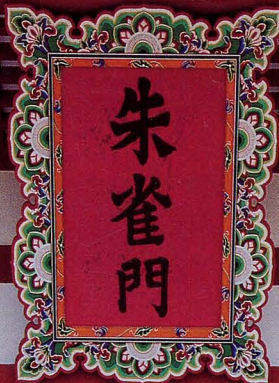 朱雀門